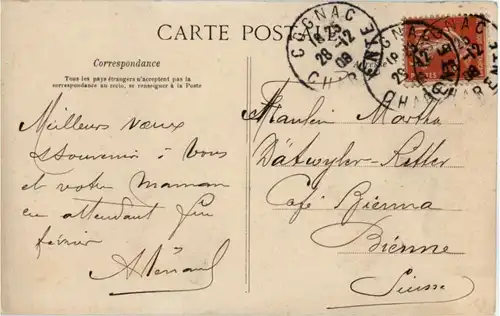 CARTE POSTALE
Correspondance
Tous les pays étrangers n'acceptent pas la
correspondance au recto, se renseigner à la Poste
COGNAC
28-12
08
CHARENTE
Meilleurs vœux
& souvenir à Vous
et votre Maman
en attendant fin
février
Fraulein Martha
Dätwyler-Retter
Café Bienna
Bienne
Suisse